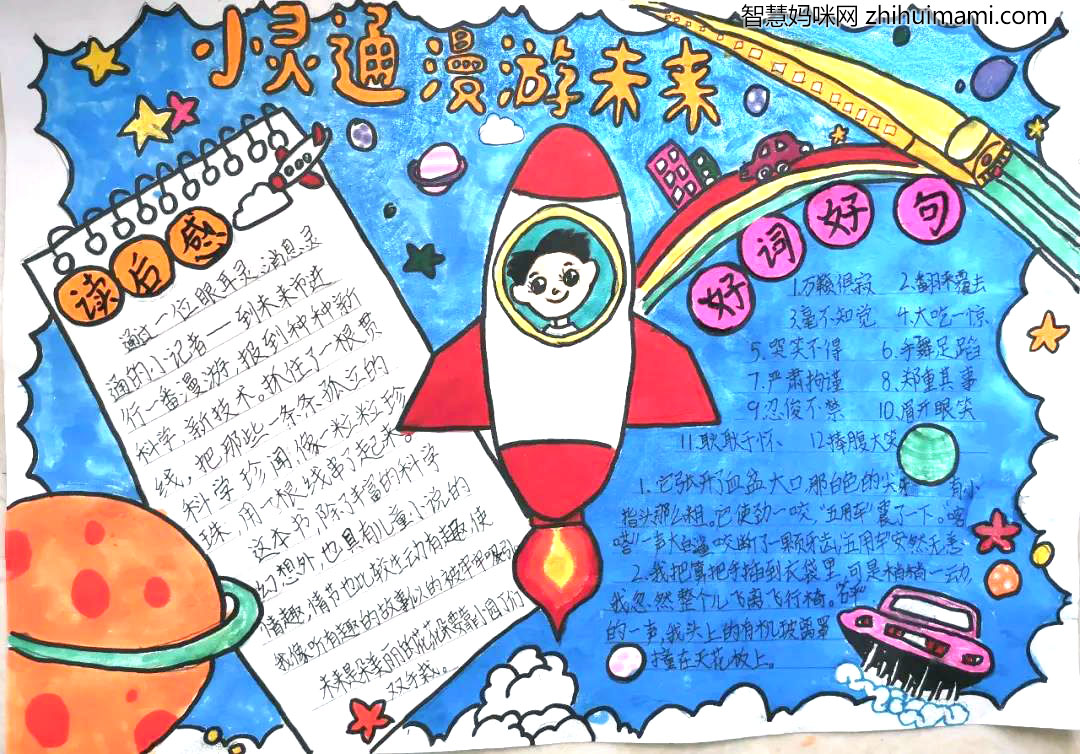 智慧妈咪网 zhihuimami.com
小灵通漫游未来
读后感
通过一位眼耳灵、消息灵
通的小记者——到未来市进
行一番漫游,报到种种新
科学,新技术。抓住了一根贯
线,把那些一条条孤立的
科学珍闻,像一粒粒珍
珠,用一根线串了起来
这本书,除了丰富的科学
幻想外,也具有儿童小说的
情趣,情节也比较生动有趣,使
我像听有趣的故事似的被牢牢吸引
未来是朵美丽的花花朵要靠园丁们
双手栽。
好词好句
1.万籁俱寂 2.翻来覆去
3.毫不知觉 4.大吃一惊
5.哭笑不得 6.手舞足蹈
7.严肃拘谨 8.郑重其事
9.忍俊不禁 10.眉开眼笑
11.耿耿于怀 12.捧腹大笑
1.它张开了血盆大口,那白色的尖牙 有小
指头那么粗。它使劲一咬,"五用车"震了一下。"喀
嗒"一声大白鲨咬断了一颗牙齿,五用车安然无恙
2.我把算把手插到衣袋里,可是稍稍一动,
我忽然整个儿飞离飞行椅。
的一声,我头上的有机玻璃罩
撞在天花板上。